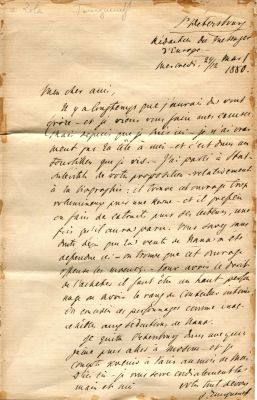 St Petersbourg
Rédaction du Messager
d'Europe
Mercredi, 24/12 Mars
1880.
Mon cher ami,
Il y a longtemps que j'aurais dû vous
écrire – et je viens vous faire mes excuses
mais depuis que je suis ici – je n'ai vrai-
ment pas la tête à moi – et c'est dans un
tourbillon que je vis. – J'ai parlé à
de votre proposition – relativement
à la biographie; il trouve cet ouvrage trop
volumineux pour une Revue – et il préfère
en faire de l'extrait pour ses lecteurs, une
fois qu'il aura paru. Vous savez sans
doute déjà que la vente de Nana a été
défendue ici – on trouve que cet ouvrage
les mœurs – pour avoir le droit
de l'acheter il faut être un haut person-
nage ou avoir le rang de conseiller intime.
On considère ces personnages comme inac-
cessibles aux séductions de Nana.
Je quitte Pétersbourg dans une
pour aller à Moscou – et je
compte revenir à Paris au mois de Mai
D'ici là – je vous serre cordialement la
main et suis
votre tout dévoué